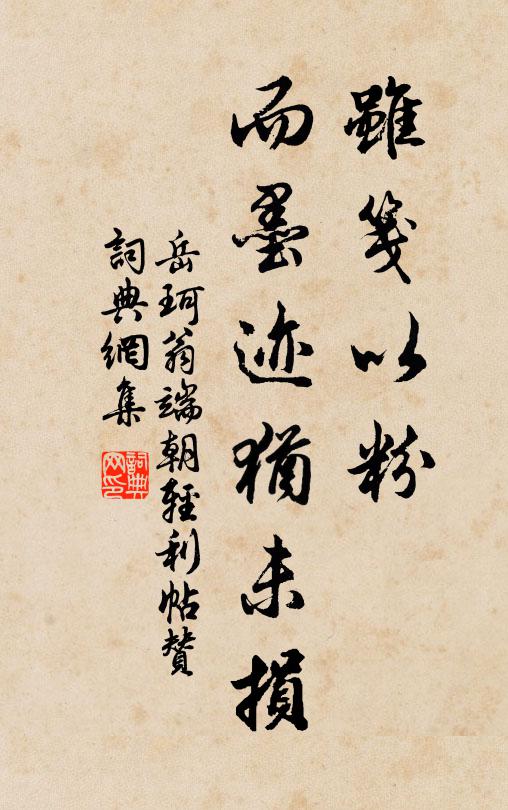 雖笺以粉
而墨迹猶未損
岳珂翁端朝輕利帖贊
詞典網集
詞典網印